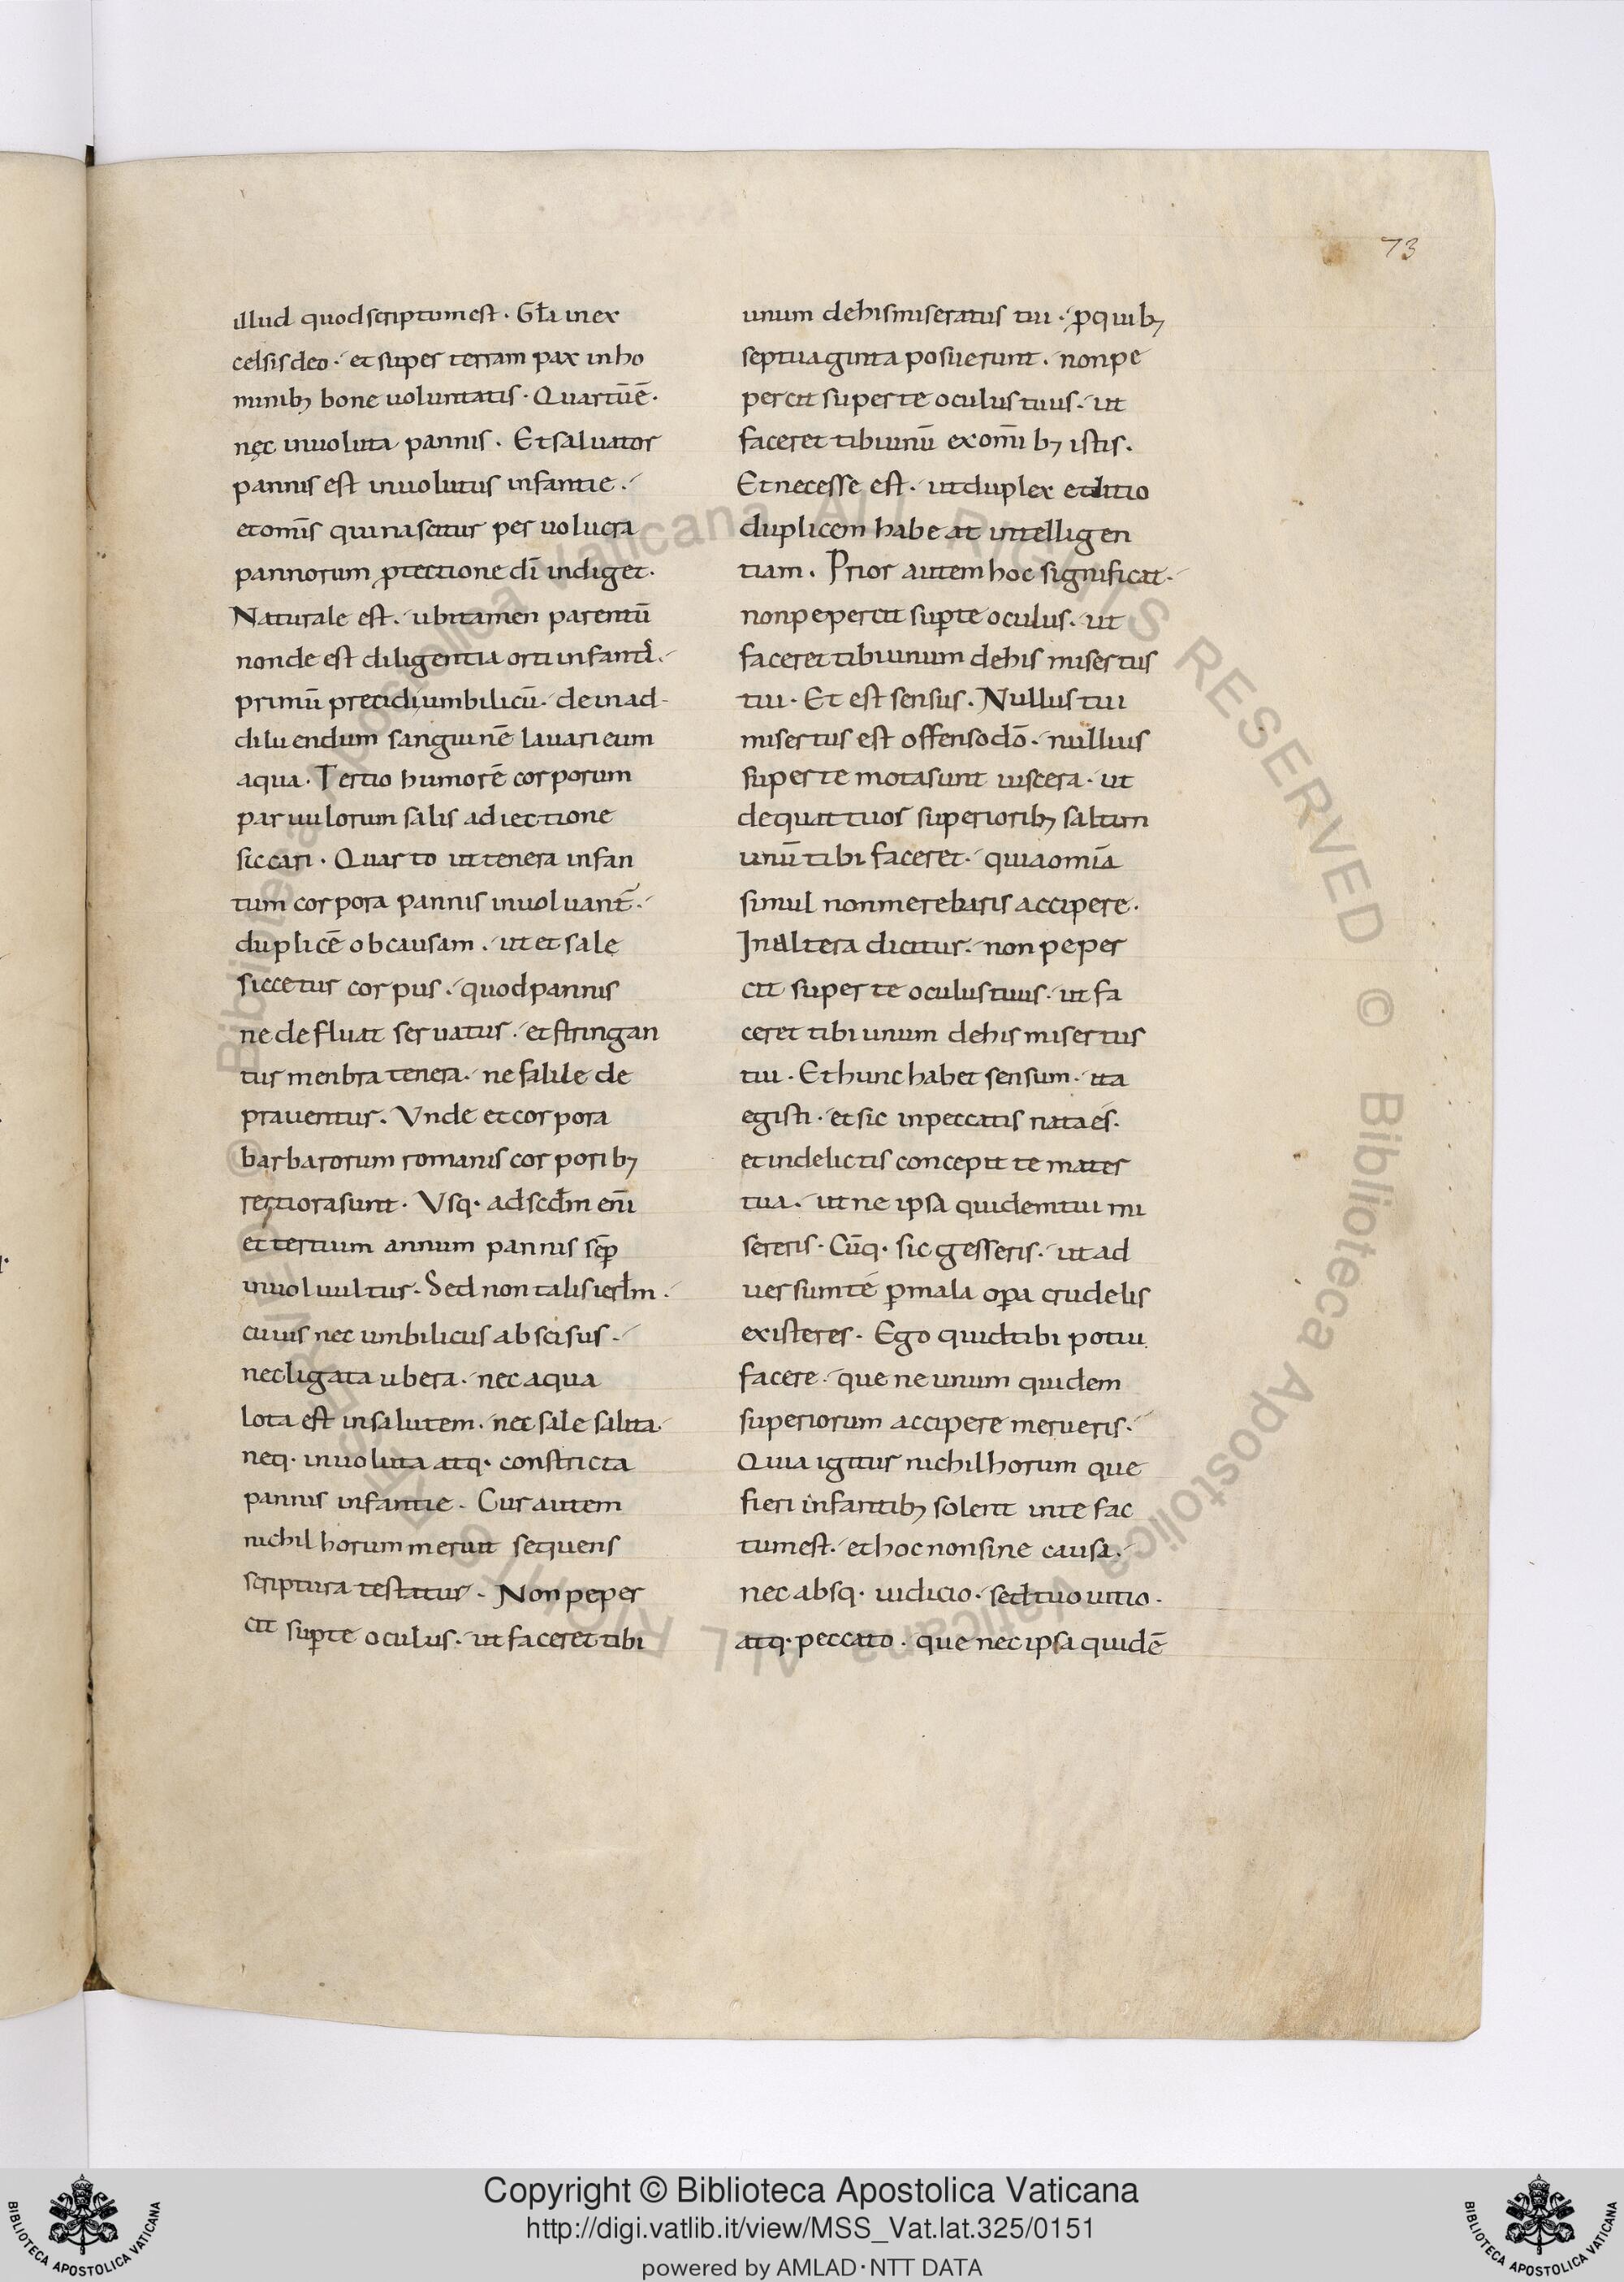 73
illud quod scriptum est · Gl̅a in ex
celsis deo · et super terram pax in ho
minib; bone uoluntatis · Quartū ē ·
nec inuoluta pannis · Et saluator
pannis est inuolutus infantie ·
et om̄s qui nascitur per uolucra
pannorum ꝓtectione dī indiget ·
Naturale est · ubi tamen parentū
non de est diligentia orti infantī ·
primū precidi umbilicū · dein ad
diluendum sanguinē lauari eum
aqua · Tertio humorē corporum
paruulorum salis adiectione
siccari · Quarto ut tenera infan
tum corpora pannis inuoluant̄ ·
duplicē ob causam · ut et sale
siccetur corpus · quod pannis
ne defluat seruatur · et stringan
tur menbra tenera · ne falile de
prauentur · Vnde et corpora
barbarorum romanis corporib;
rectiora sunt · Vsq· ad scd̅m eni̅
et tertium annum pannis sep̄
inuoluultur · Sed non talis ierl̅m ·
cuius nec umbilicus abscisus ·
nec ligata ubera · nec aqua
lota est in salutem · nec sale salita ·
neq· inuoluta atq· constricta
pannis infantie · Cur autem
nichil horum meruit sequens
scriptura testatur · Non peper
cit sup̱ te oculus · ut faceret tibi
unum de his miseratus tui · ꝓ quib;
septuaginta posuerunt · non pe
percit super te oculus tuus · ut
faceret tibi unū ex om̄i b; istis ·
Et necesse est · ut duplex editio
duplicem habeat intelligen
tiam · Prior autem hoc significat ·
non pepercit sup̱ te oculus · ut
faceret tibi unum de his misertus
tui · Et est sensus · Nullus tui
misertus est offenso dō · nullius
super te mota sunt uiscera · ut
de quattuor superiorib; saltim
unū tibi faceret · quia omīa
simul non merebaris accipere ·
In altera dicitur · non peper
cit super te oculus tuus · ut fa
ceret tibi unum de his misertus
tui · Et hunc habet sensum · ita
egisti · et sic in peccatis nata es ·
et in delictis concepit te mater
tua · ut ne ipsa quidem tui mi
sereris · Cūq· sic gesseris · ut ad
uersum te ꝑ mala oꝑa crudelis
existeres · Ego quid tibi potui
facere · que ne unum quidem
superiorum accipere merueris ·
Quia igitur nichil horum que
fieri infantib; solent in te fac
tum est · et hoc non sine causa ·
nec absq· iudicio · sed tuo uitio ·
atq· peccato · que nec ipsa quidē
Copyright © Biblioteca Apostolica Vaticana
http://digi.vatlib.it/view/MSS_Vat.lat.325/0151
powered by AMLAD·NTT DATA